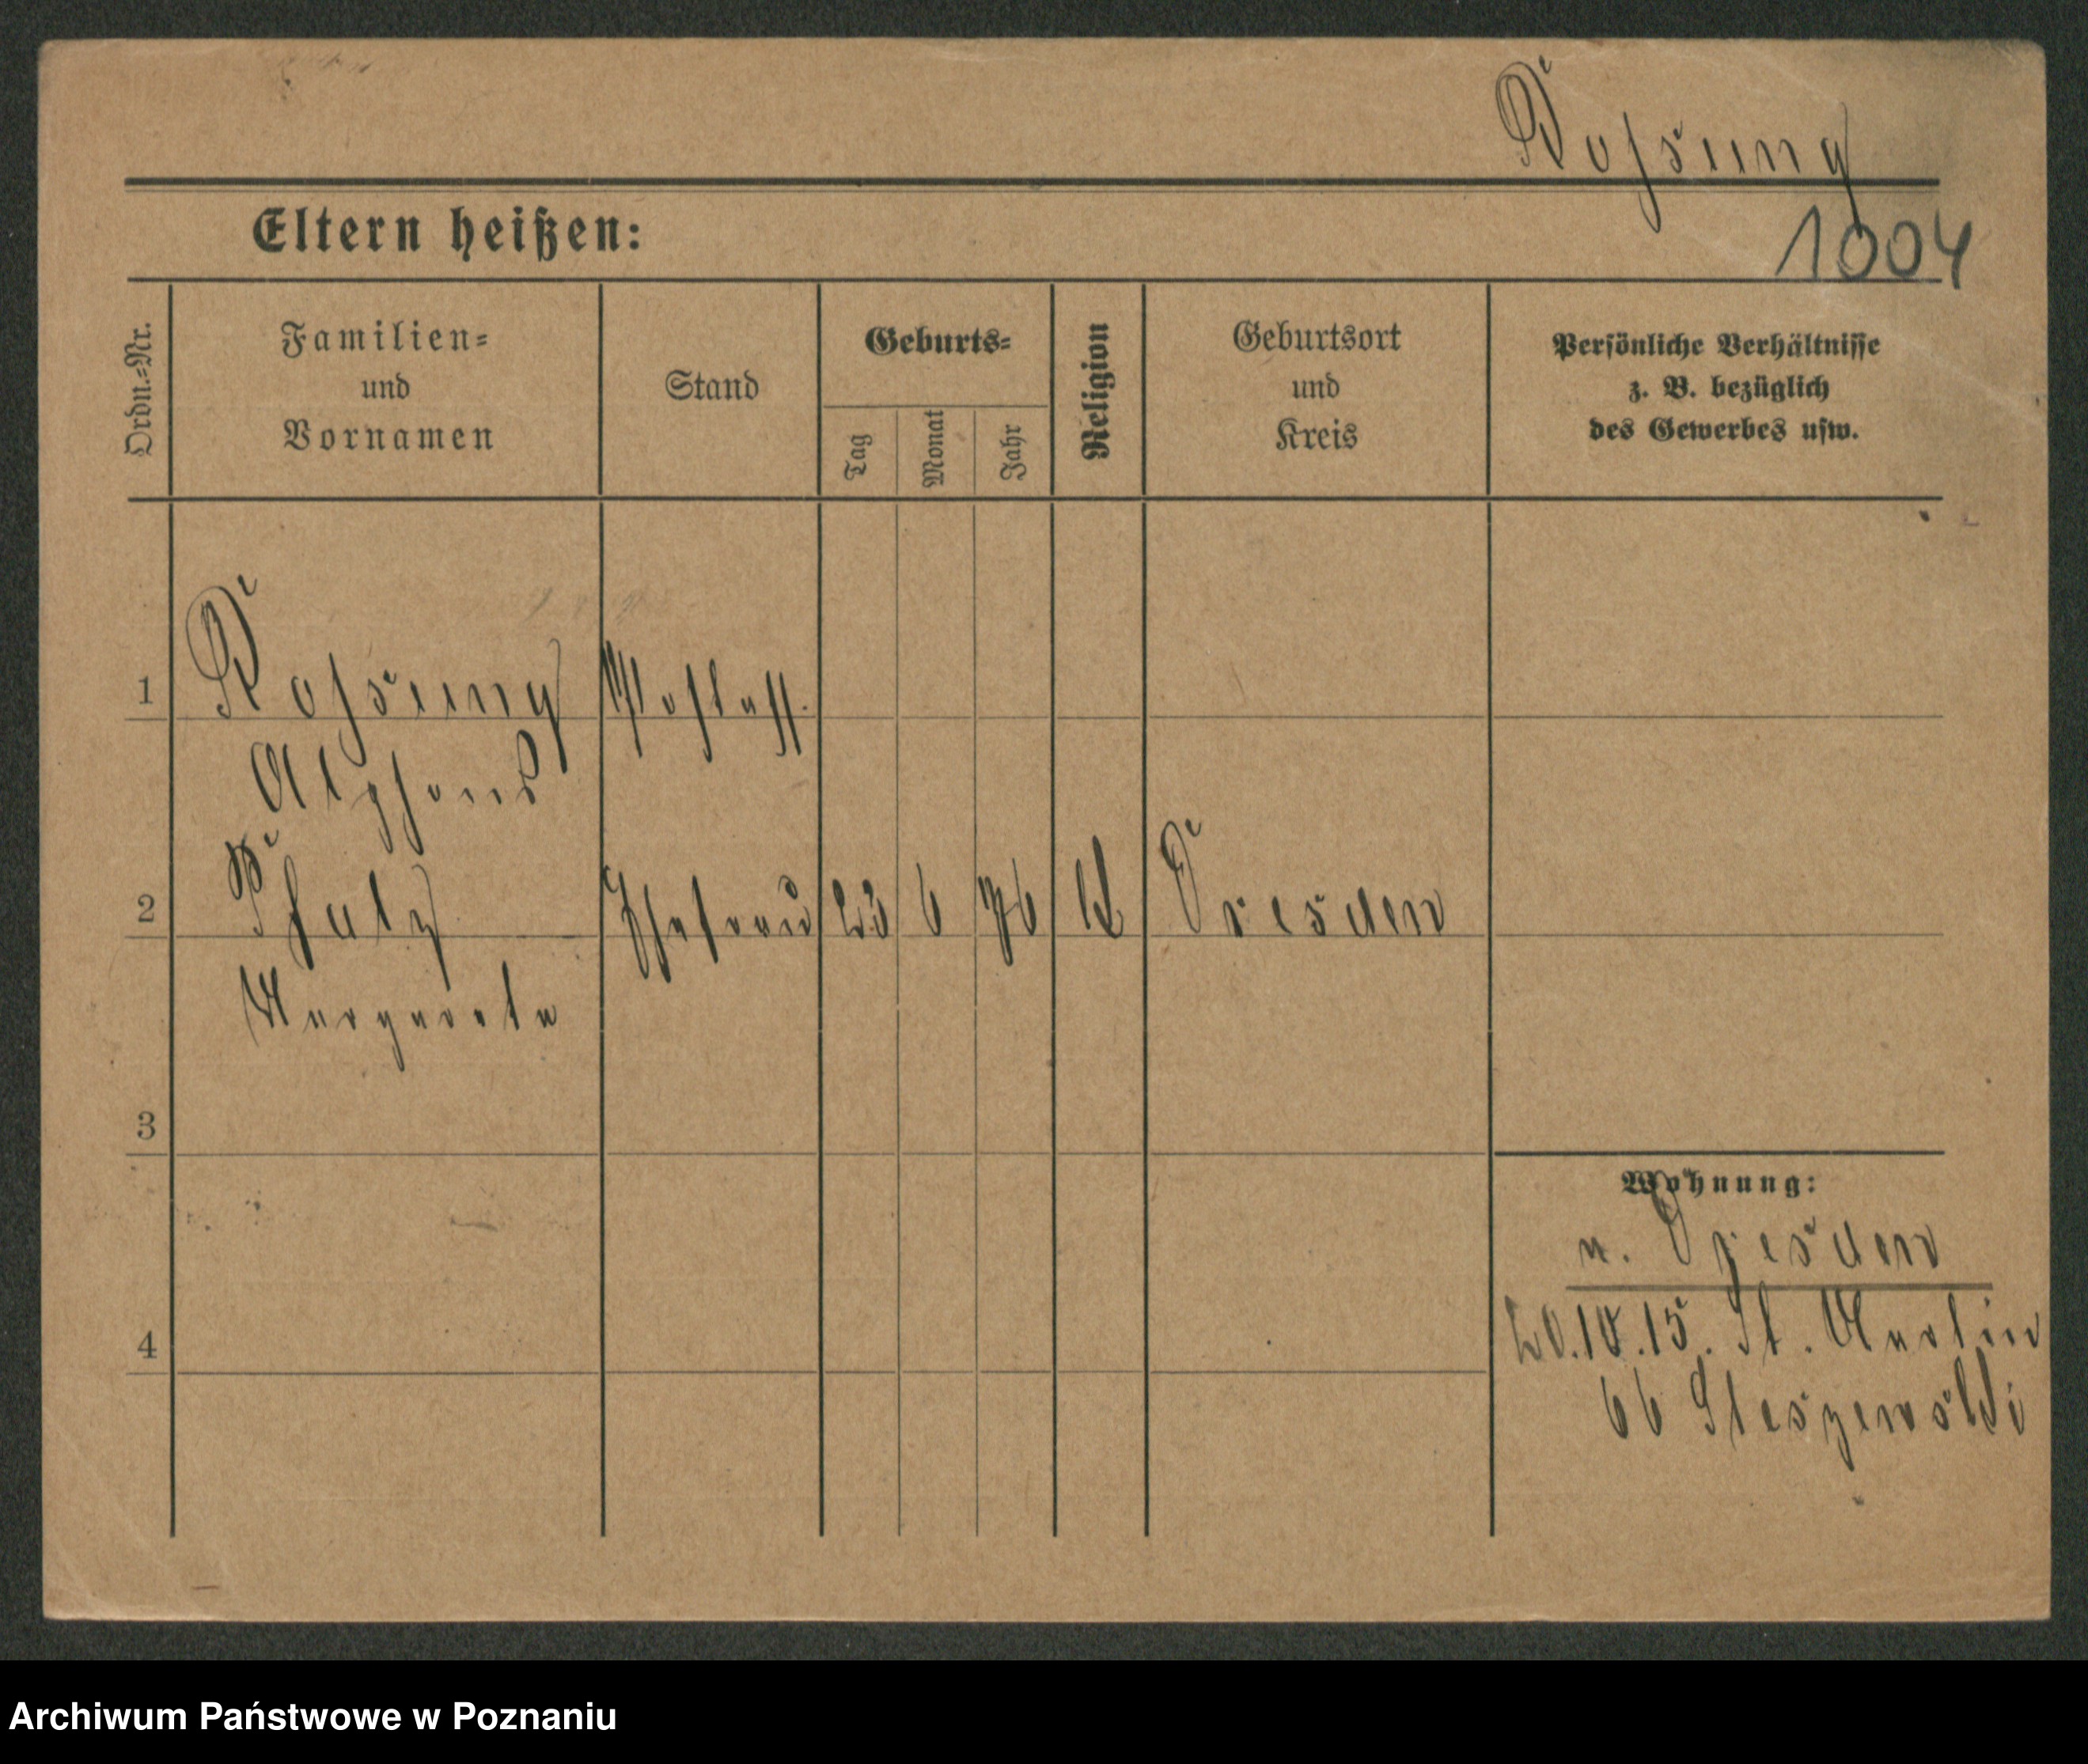 Rossung
1004
Eltern heißen:
Ordn.-Nr.
Familien-
und
Vornamen
Stand
Geburts-
Tag
Monat
Jahr
Religion
Geburtsort
und
Kreis
Persönliche Verhältnisse
z. B. bezüglich
des Gewerbes usw.
1 Rossung Postass.
Alphons
2 Ehefrau 23 6 76 k Dresden
Margarete
3
Wohnung:
v. Dresden
20.10.15. St. Martin
4
66 Steszewski
Archiwum Państwowe w Poznaniu